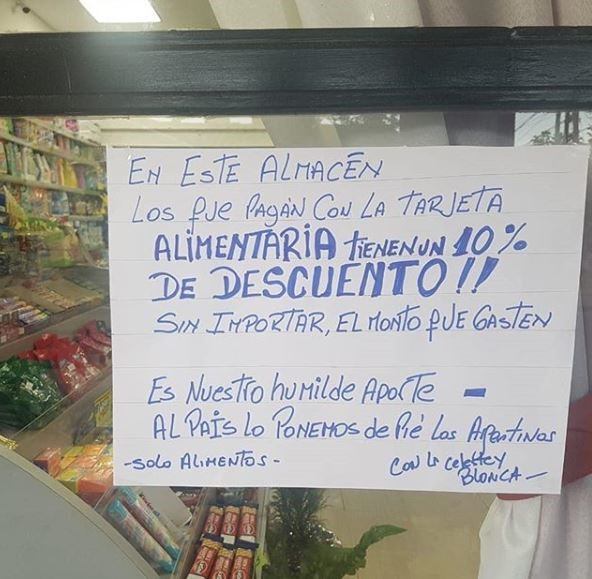 EN ESTE ALMACÉN
LOS QUE PAGAN CON LA TARJETA
ALIMENTARIA TIENEN UN 10%
DE DESCUENTO!!
SIN IMPORTAR, EL MONTO QUE GASTEN
ES NUESTRO HUMILDE APORTE -
AL PAÍS LO PONEMOS de Pié Los ARgENTINOS
-SOLO ALIMENTOS-
CON LA CELESTE Y
BLANCA-